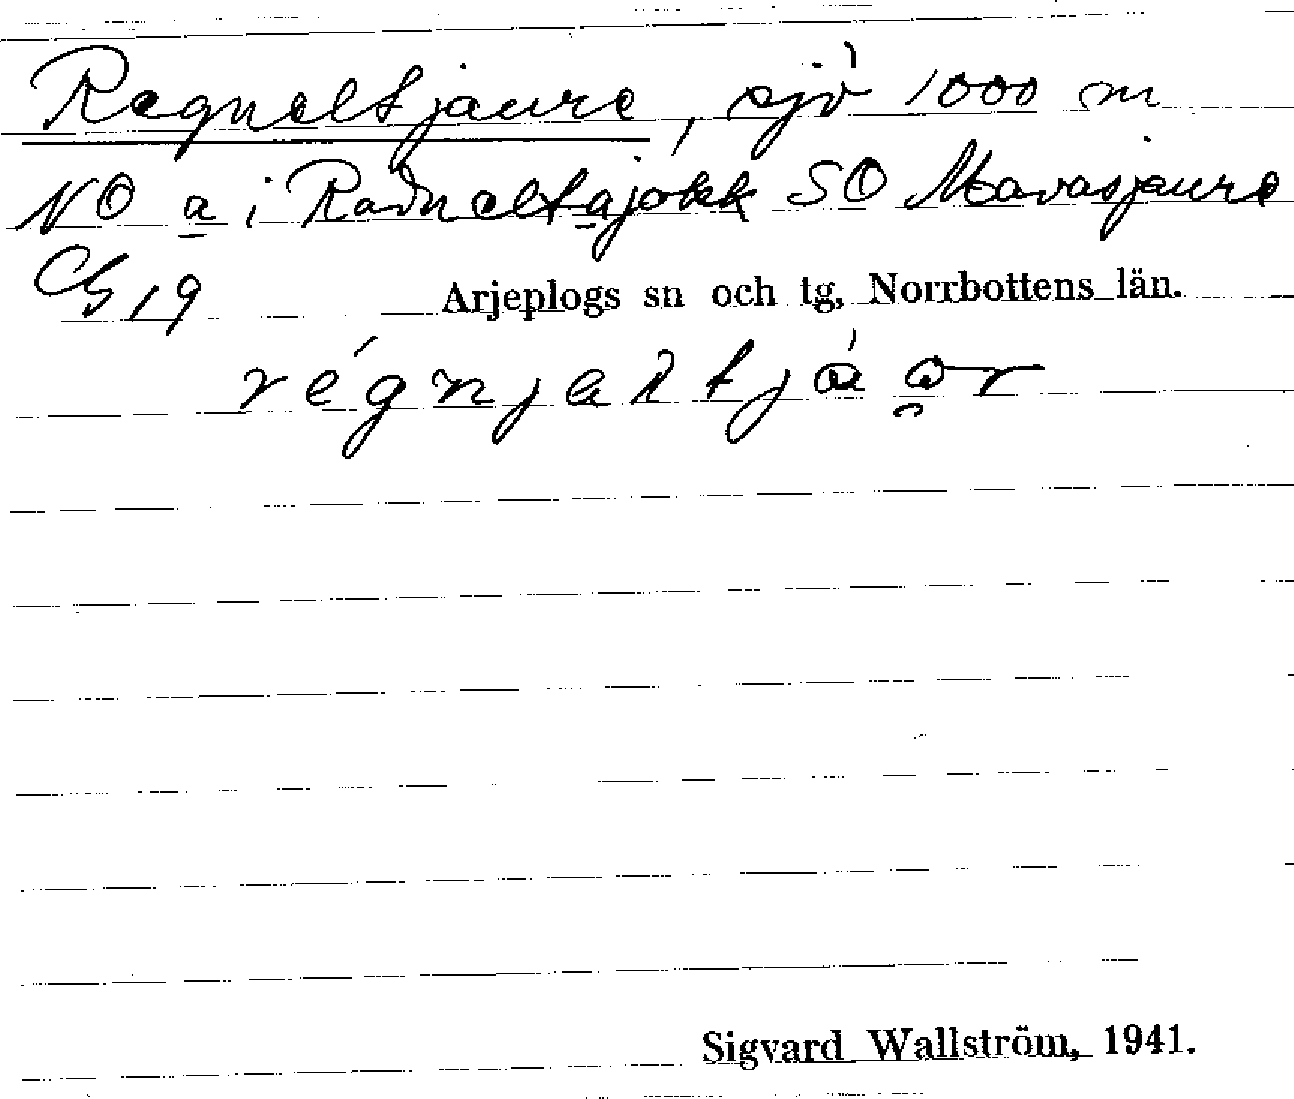 Regneltjaure, sjö 1000 m
NO a i Radneltajåkk SO Mavasjaure
Cb 19 Arjeplogs sn och tg, Norrbottens län.
régnjeltjáor
Sigvard Wallström, 1941.